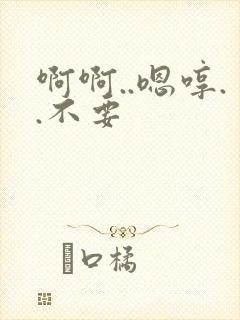 啊啊..嗯哼.
.不要
口橘